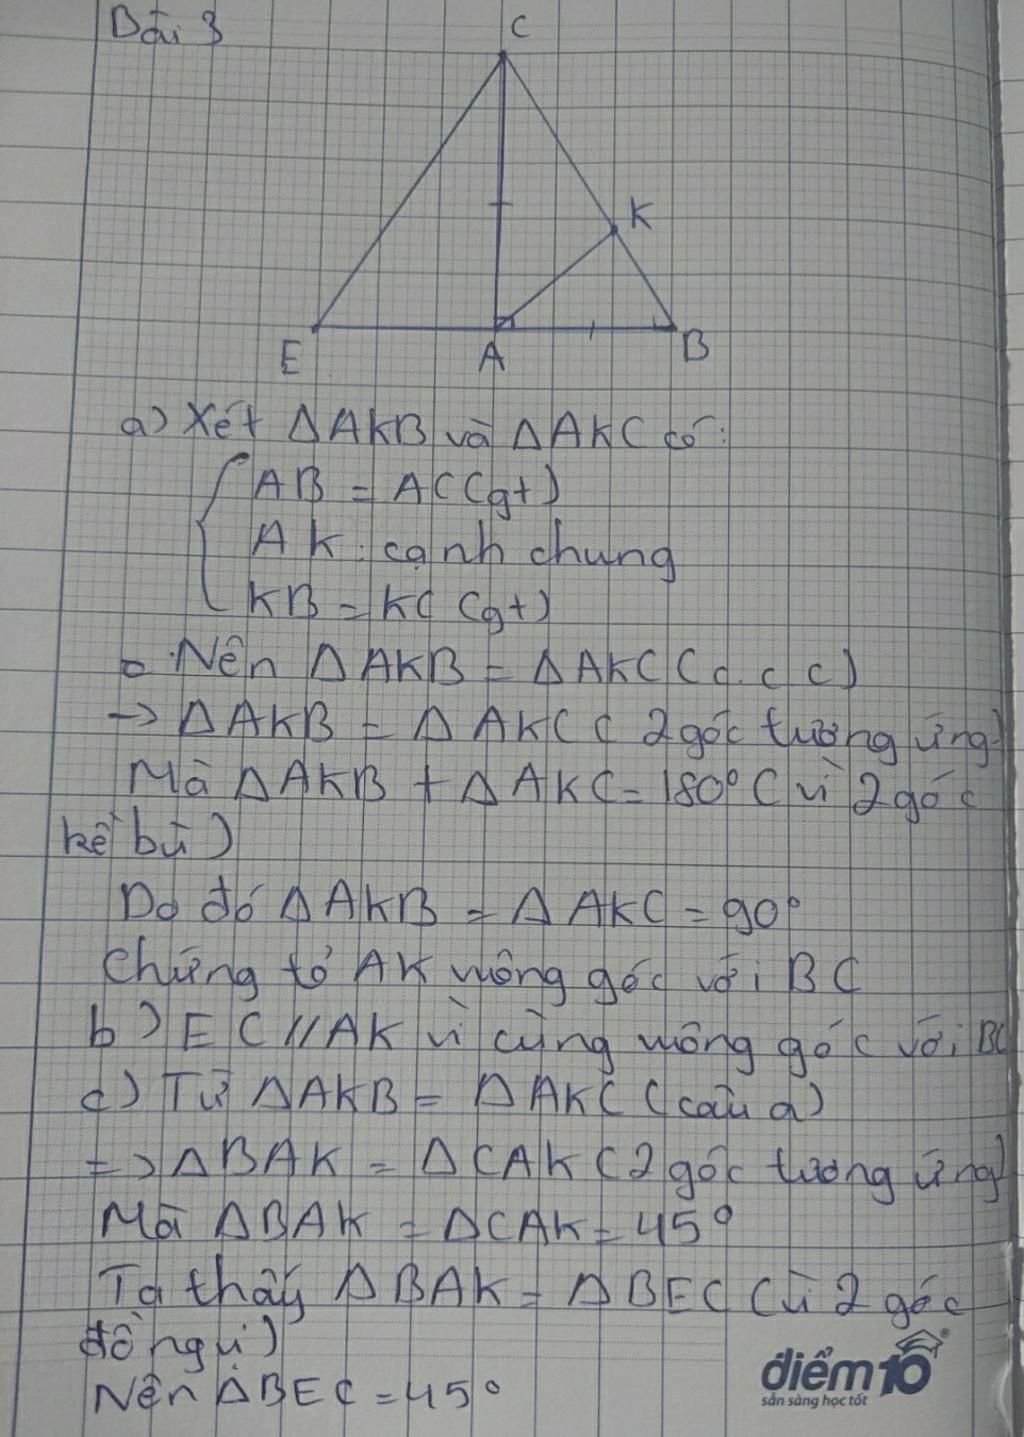 Bài 3
C
K
E
A
B
a) Xét ΔAKB và ΔAKC có:
AB = AC (gt)
AK: cạnh chung
KB = KC (gt)
Nên ΔAKB = ΔAKC (c.c.c)
-> ΔAKB = ΔAKC (2 góc tương ứng)
Mà ΔAKB + ΔAKC = 180° (vì 2 góc
kề bù)
Do đó ΔAKB = ΔAKC = 90°
Chứng tỏ AK vuông góc với BC
b) EC // AK vì cùng vuông góc với BC
c) Từ ΔAKB = ΔAKC (câu a)
=> ΔBAK = ΔCAK (2 góc tương ứng)
Mà ΔBAK = ΔCAK = 45°
Ta thấy ΔBAK = ΔBEC (vì 2 góc
đồng vị)
Nên ΔBEC = 45°
điểm10
sẵn sàng học tốt